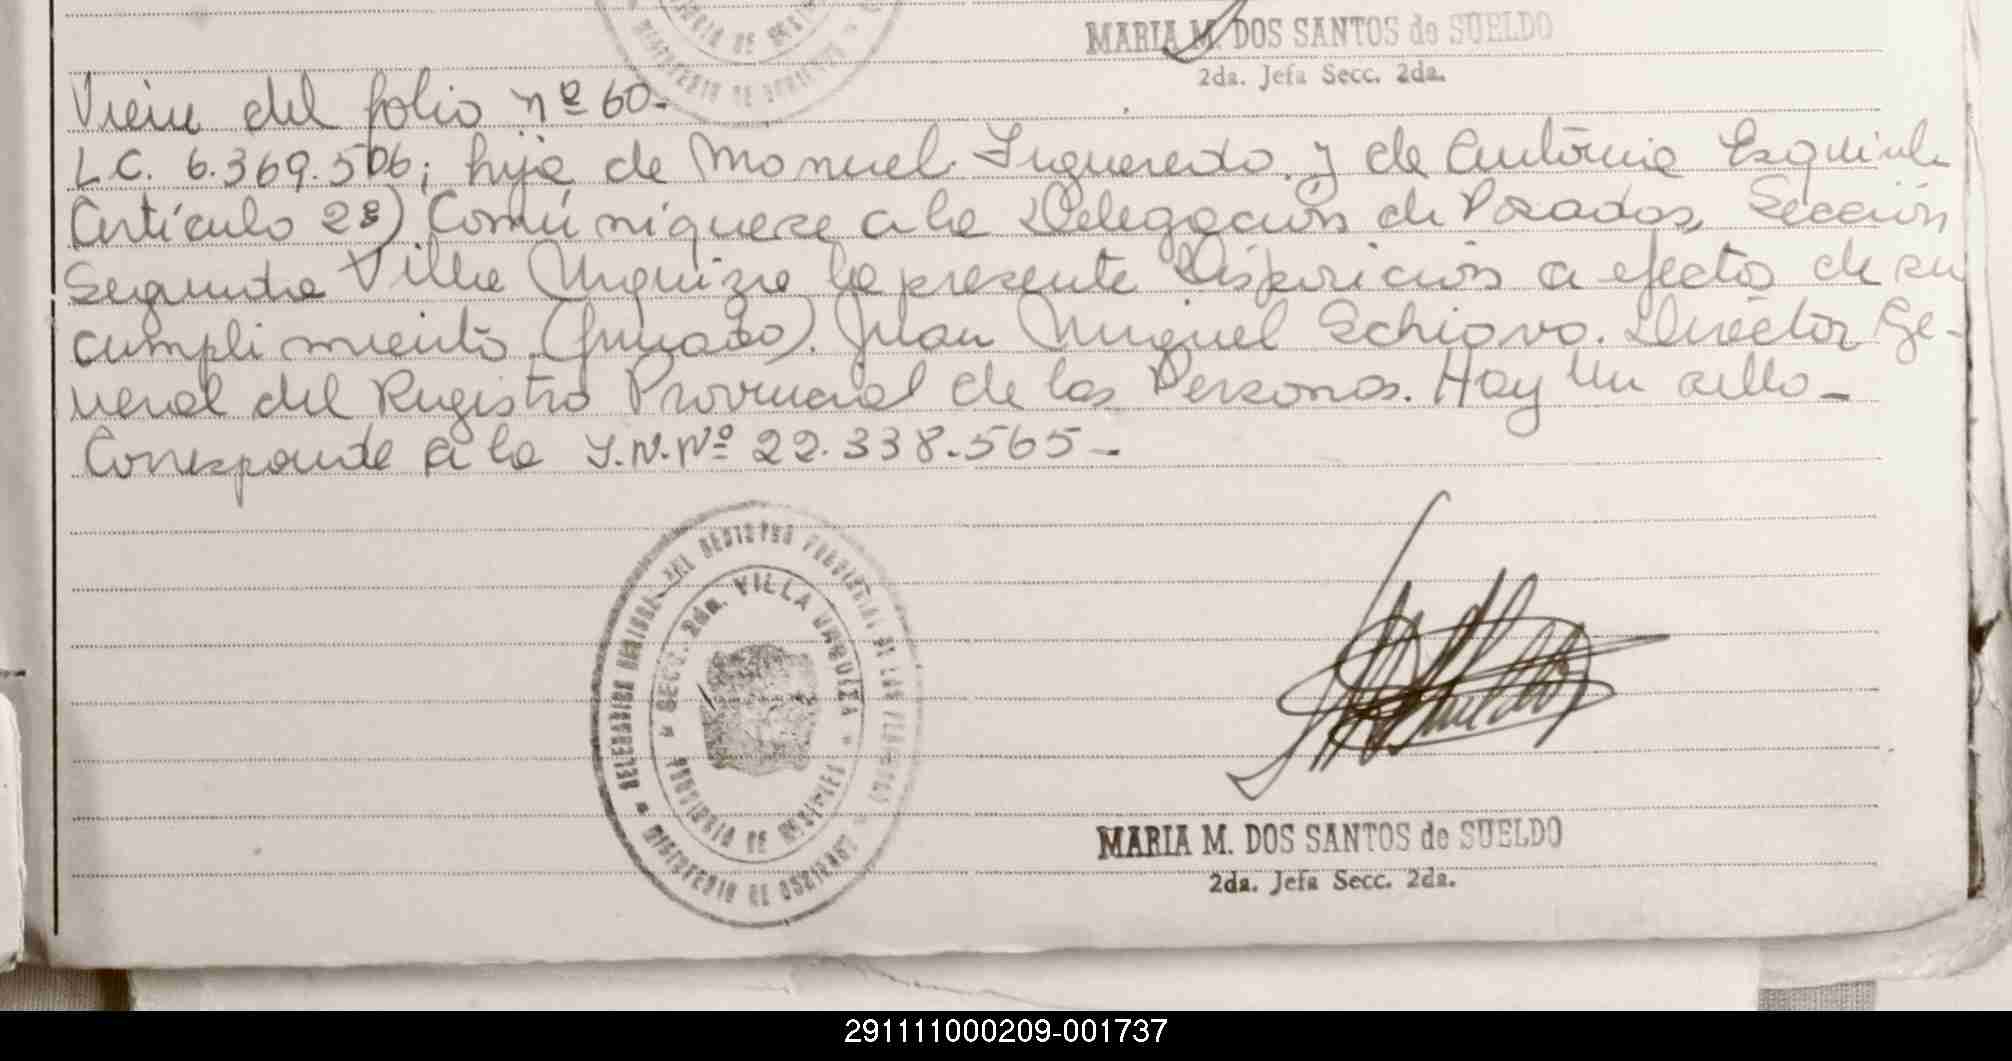 PROVINCIA DE MISIONES
MINISTERIO DE GOBIERNO
MARIA M. DOS SANTOS de SUELDO
2da. Jefa Secc. 2da.
Viene del folio nº 60-
L.C. 6.369.506; hija de Manuel Figueredo y de Antonia Esquivel
Artículo 2º) Comuníquese a la Delegación de Posadas, Sección
Segunda Villa Urquiza la presente Disposición a efectos de su
cumplimiento (firmado). Juan Miguel Schiavo. Director Ge-
neral del Registro Provincial de las Personas. Hay un sello-
Corresponde a la I.N.Nº 22.338.565-
DEL REGISTRO PROVINCIAL DE LAS PERSONAS
SECC. 2da. VILLA URQUIZA
PROVINCIA DE MISIONES
MINISTERIO DE GOBIERNO
MARIA M. DOS SANTOS de SUELDO
2da. Jefa Secc. 2da.
291111000209-001737